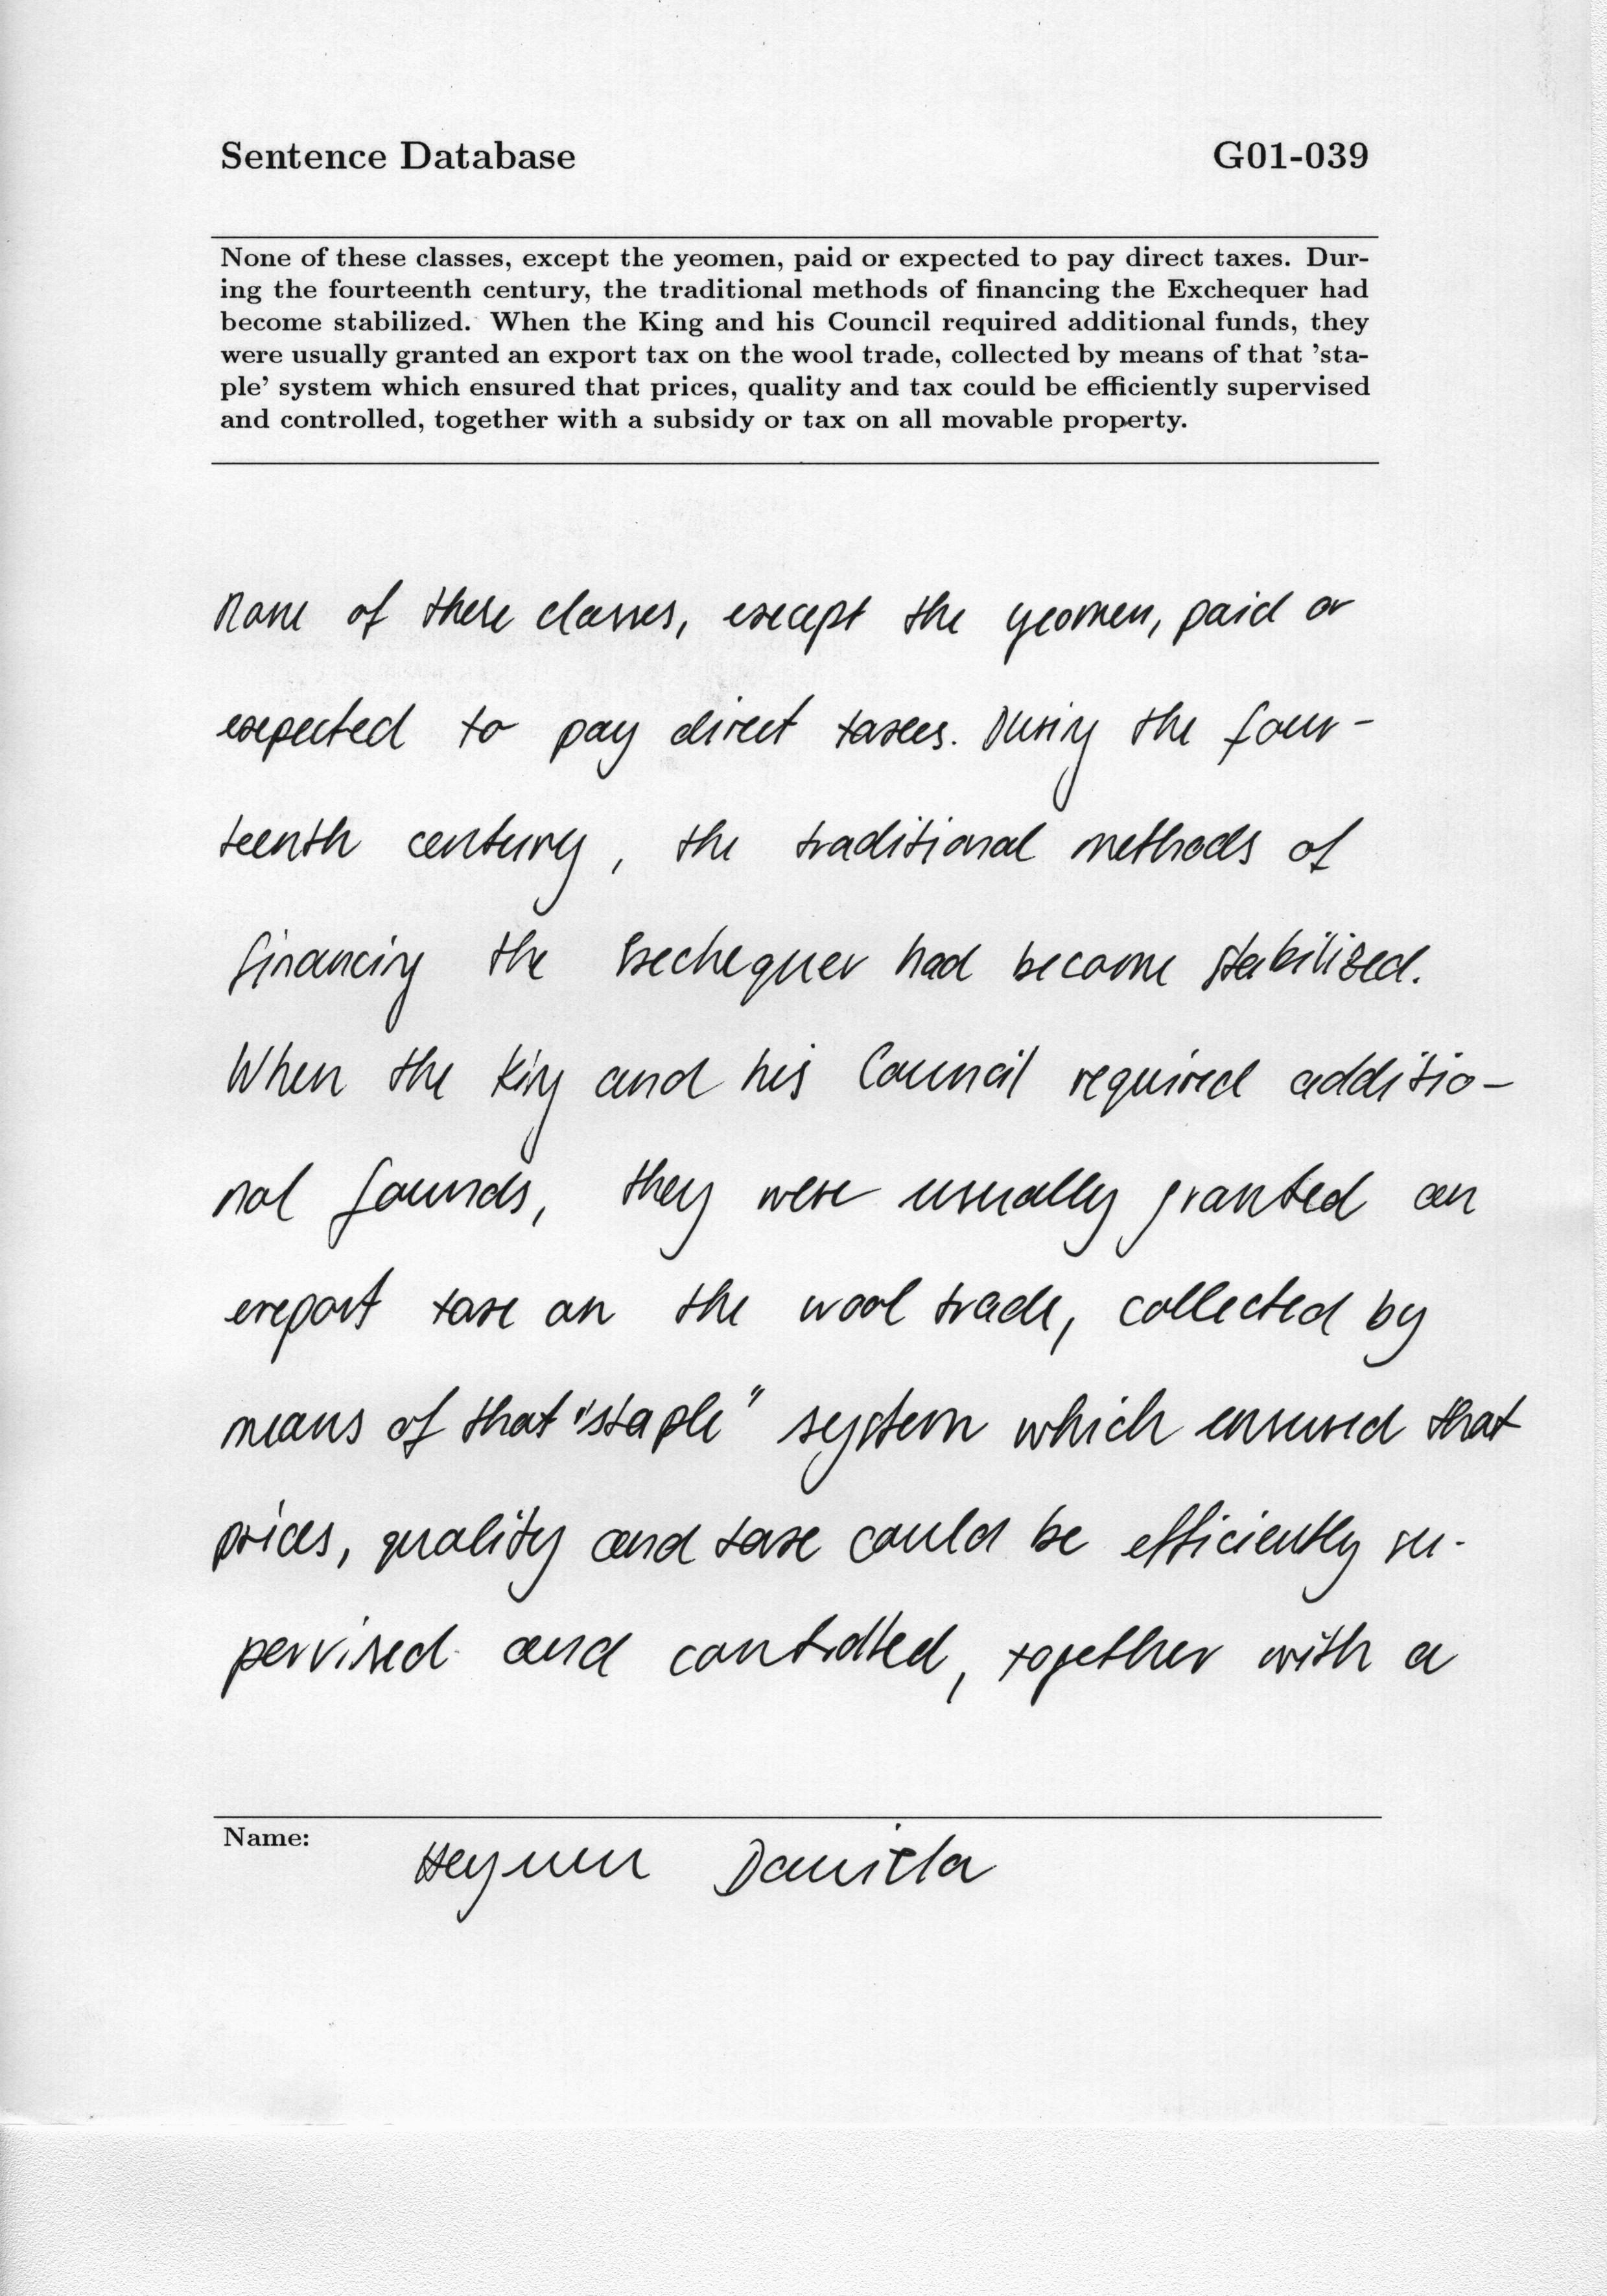 Sentence Database G01-039
None of these classes, except the yeomen, paid or expected to pay direct taxes. Dur-
ing the fourteenth century, the traditional methods of financing the Exchequer had
become stabilized. When the King and his Council required additional funds, they
were usually granted an export tax on the wool trade, collected by means of that 'sta-
ple' system which ensured that prices, quality and tax could be efficiently supervised
and controlled, together with a subsidy or tax on all movable property.
None of these classes, except the yeomen, paid or
expected to pay direct taxes. During the four-
teenth century, the traditional methods of
financing the Exchequer had become stabilized.
When the King and his Council required additio-
nal founds, they were usually granted an
export tax on the wool trade, collected by
means of that "staple" system which ensured that
prices, quality and tax could be efficiently su-
pervised and controlled, together with a
Name: Heynen Daniela